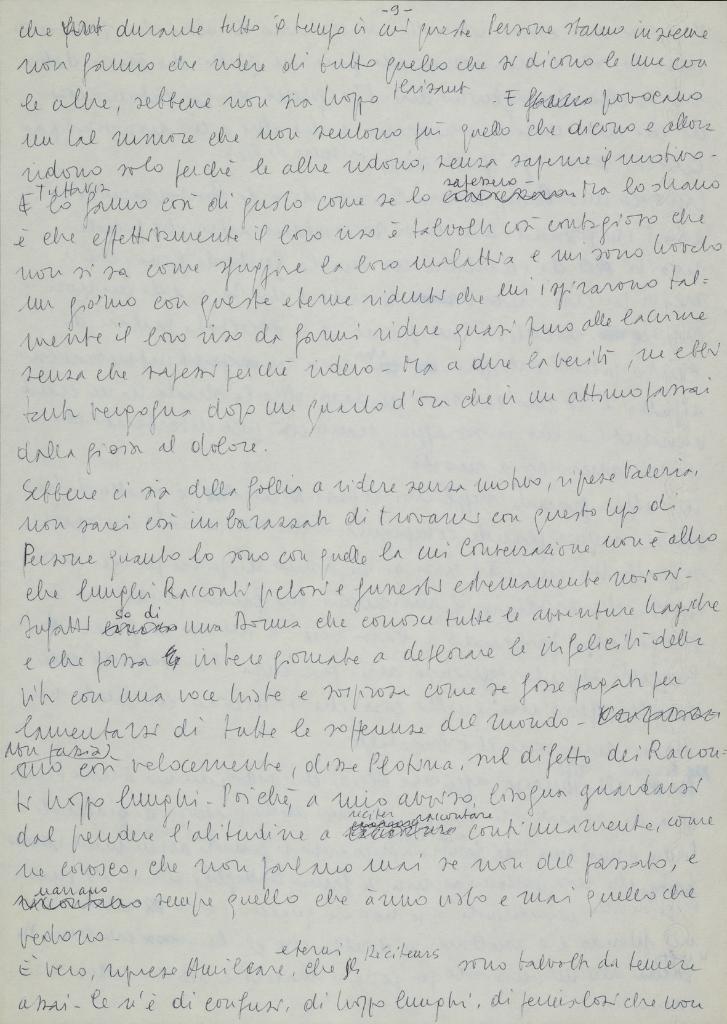 -9-
che durante tutto il tempo in cui queste Persone stanno insieme
non fanno che ridere di tutto quello che si dicono le une con
le altre, sebbene non sia troppo Plaisant. E provocano
un tal rumore che non sentono più quello che dicono e allora
ridono solo perchè le altre ridono, senza saperne il motivo-
Tuttavia lo fanno così di gusto come se lo sapessero- Ma lo strano
è che effettivamente il loro riso è talvolta così contagioso che
non si sa come sfuggire la loro malattia e mi sono trovato
un giorno con queste eterne ridenti che mi ispirarono tal=
mente il loro riso da farmi ridere quasi fino alle lacrime
senza che sapessi perchè ridevo- Ma a dire la verità, ne ebbi
tanta vergogna dopo un quarto d'ora che in un attimo passai
dalla gioia al dolore.
Sebbene ci sia della follia a ridere senza motivo, riprese Valeria,
non sarei così imbarazzata di trovarmi con questo tipo di
Persone quanto lo sono con quelle la cui Conversazione non è altro
che lunghi Racconti pietosi e funesti estremamente noiosi-
Infatti so di una Donna che conosce tutte le avventure tragiche
e che passa intere giornate a deplorare le infelicità della
vita con una voce triste e sospirosa come se fosse pagata per
lamentarsi di tutte le sofferenze del mondo-
Non passia=
mo così velocemente, disse Plotina, sul difetto dei Raccon=
ti troppo lunghi- Poichè, a mio avviso, bisogna guardarsi
dal prendere l'abitudine a réciter raccontare continuamente, come
ne conosco, che non parlano mai se non del passato, e
narrano sempre quello che ànno visto e mai quello che
vedono-
È vero, riprese Amilcare, che eterni Réciteurs sono talvolta da temere
assai- Ce n'è di confusi, di troppo lunghi, di che non